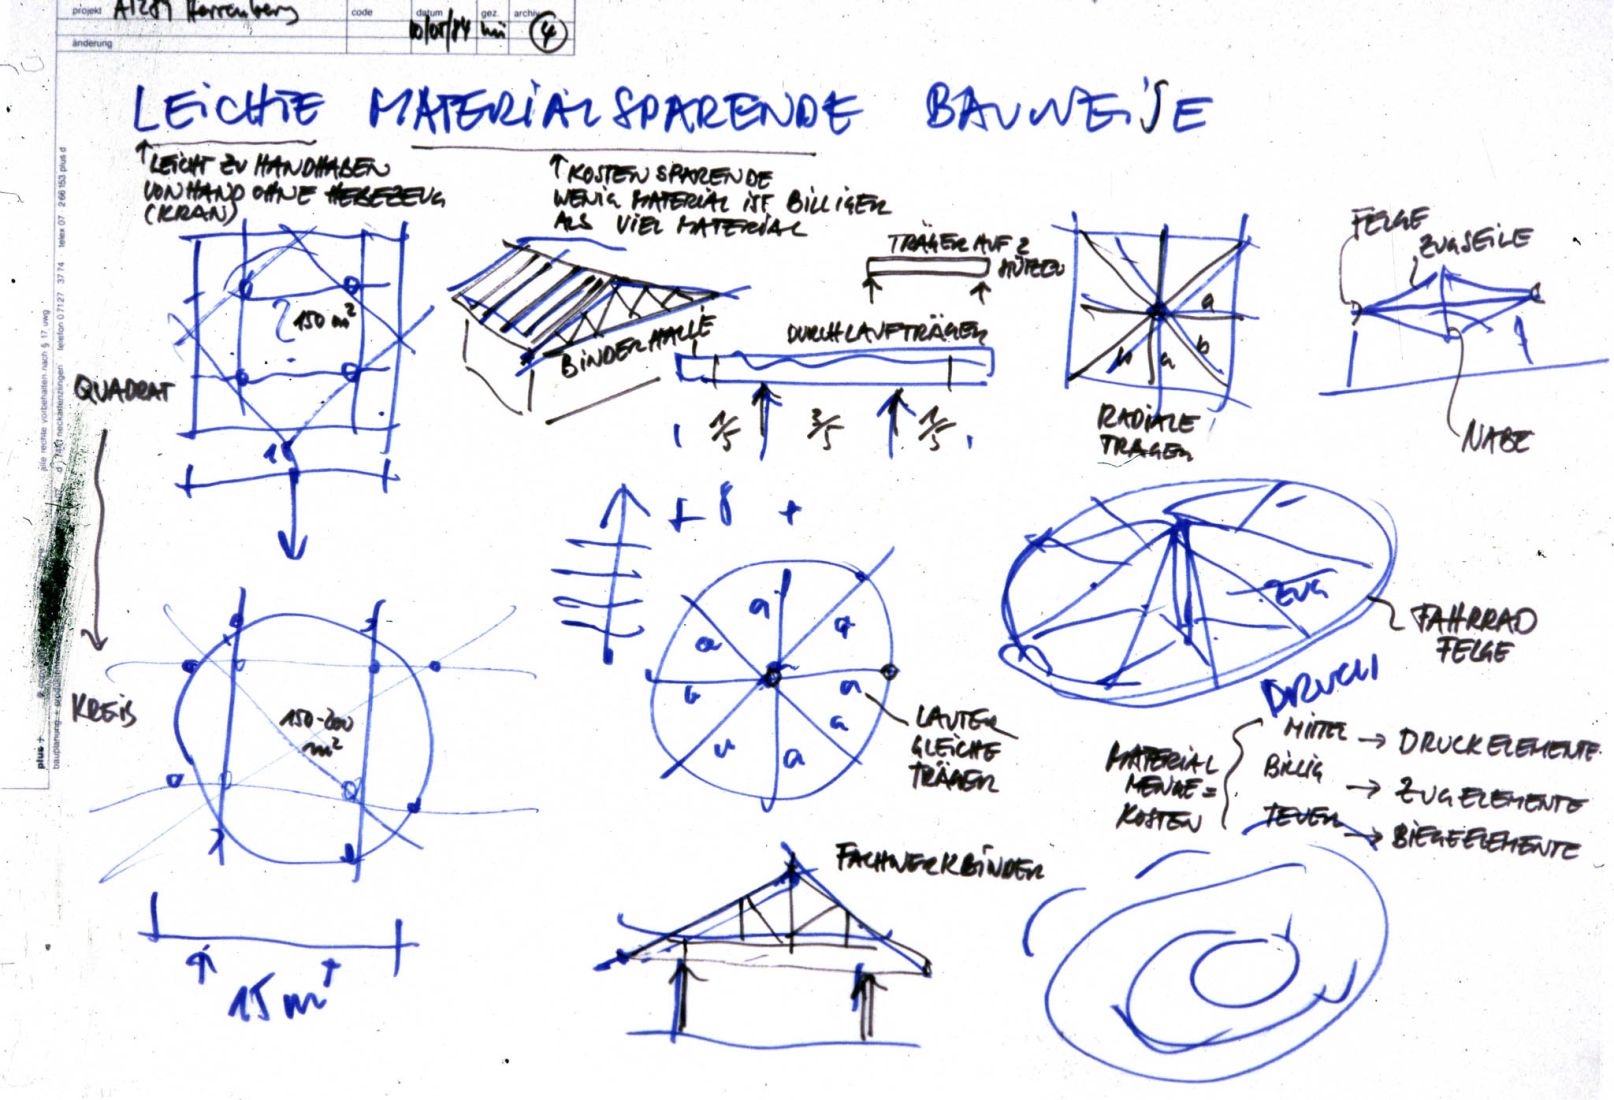 projekt A1289 Herrenberg
code
datum 10/05/84
gez.
archiv 4
änderung
LEICHTE MATERIALSPARENDE BAUWEISE
↑ LEICHT ZU HANDHABEN
VON HAND OHNE HEBEZEUG
(KRAN)
↑ KOSTENSPARENDE
WENIG MATERIAL IST BILLIGER
ALS VIEL MATERIAL
150 m²
QUADRAT
BINDERHALLE
TRÄGER AUF 2
STÜTZEN
DURCHLAUFTRÄGER
1/5 3/5 1/5
a
b
a
RADIALE
TRÄGER
FELGE
ZUGSEILE
NABE
KREIS
150-200
m²
15 m
+ 8 +
a
a
a
a
a
a
LAUTER
GLEICHE
TRÄGER
ZUG
FAHRRAD
FELGE
DRUCK
MATERIAL
MENGE =
KOSTEN
MITTEL → DRUCKELEMENTE
BILLIG → ZUGELEMENTE
TEUER → BIEGEELEMENTE
FACHWERKBINDER
alle rechte vorbehalten nach § 17 uwg
plus +
bauplanung
neckartenzlingen telefon 07127 3774 telex 07 266153 plus d